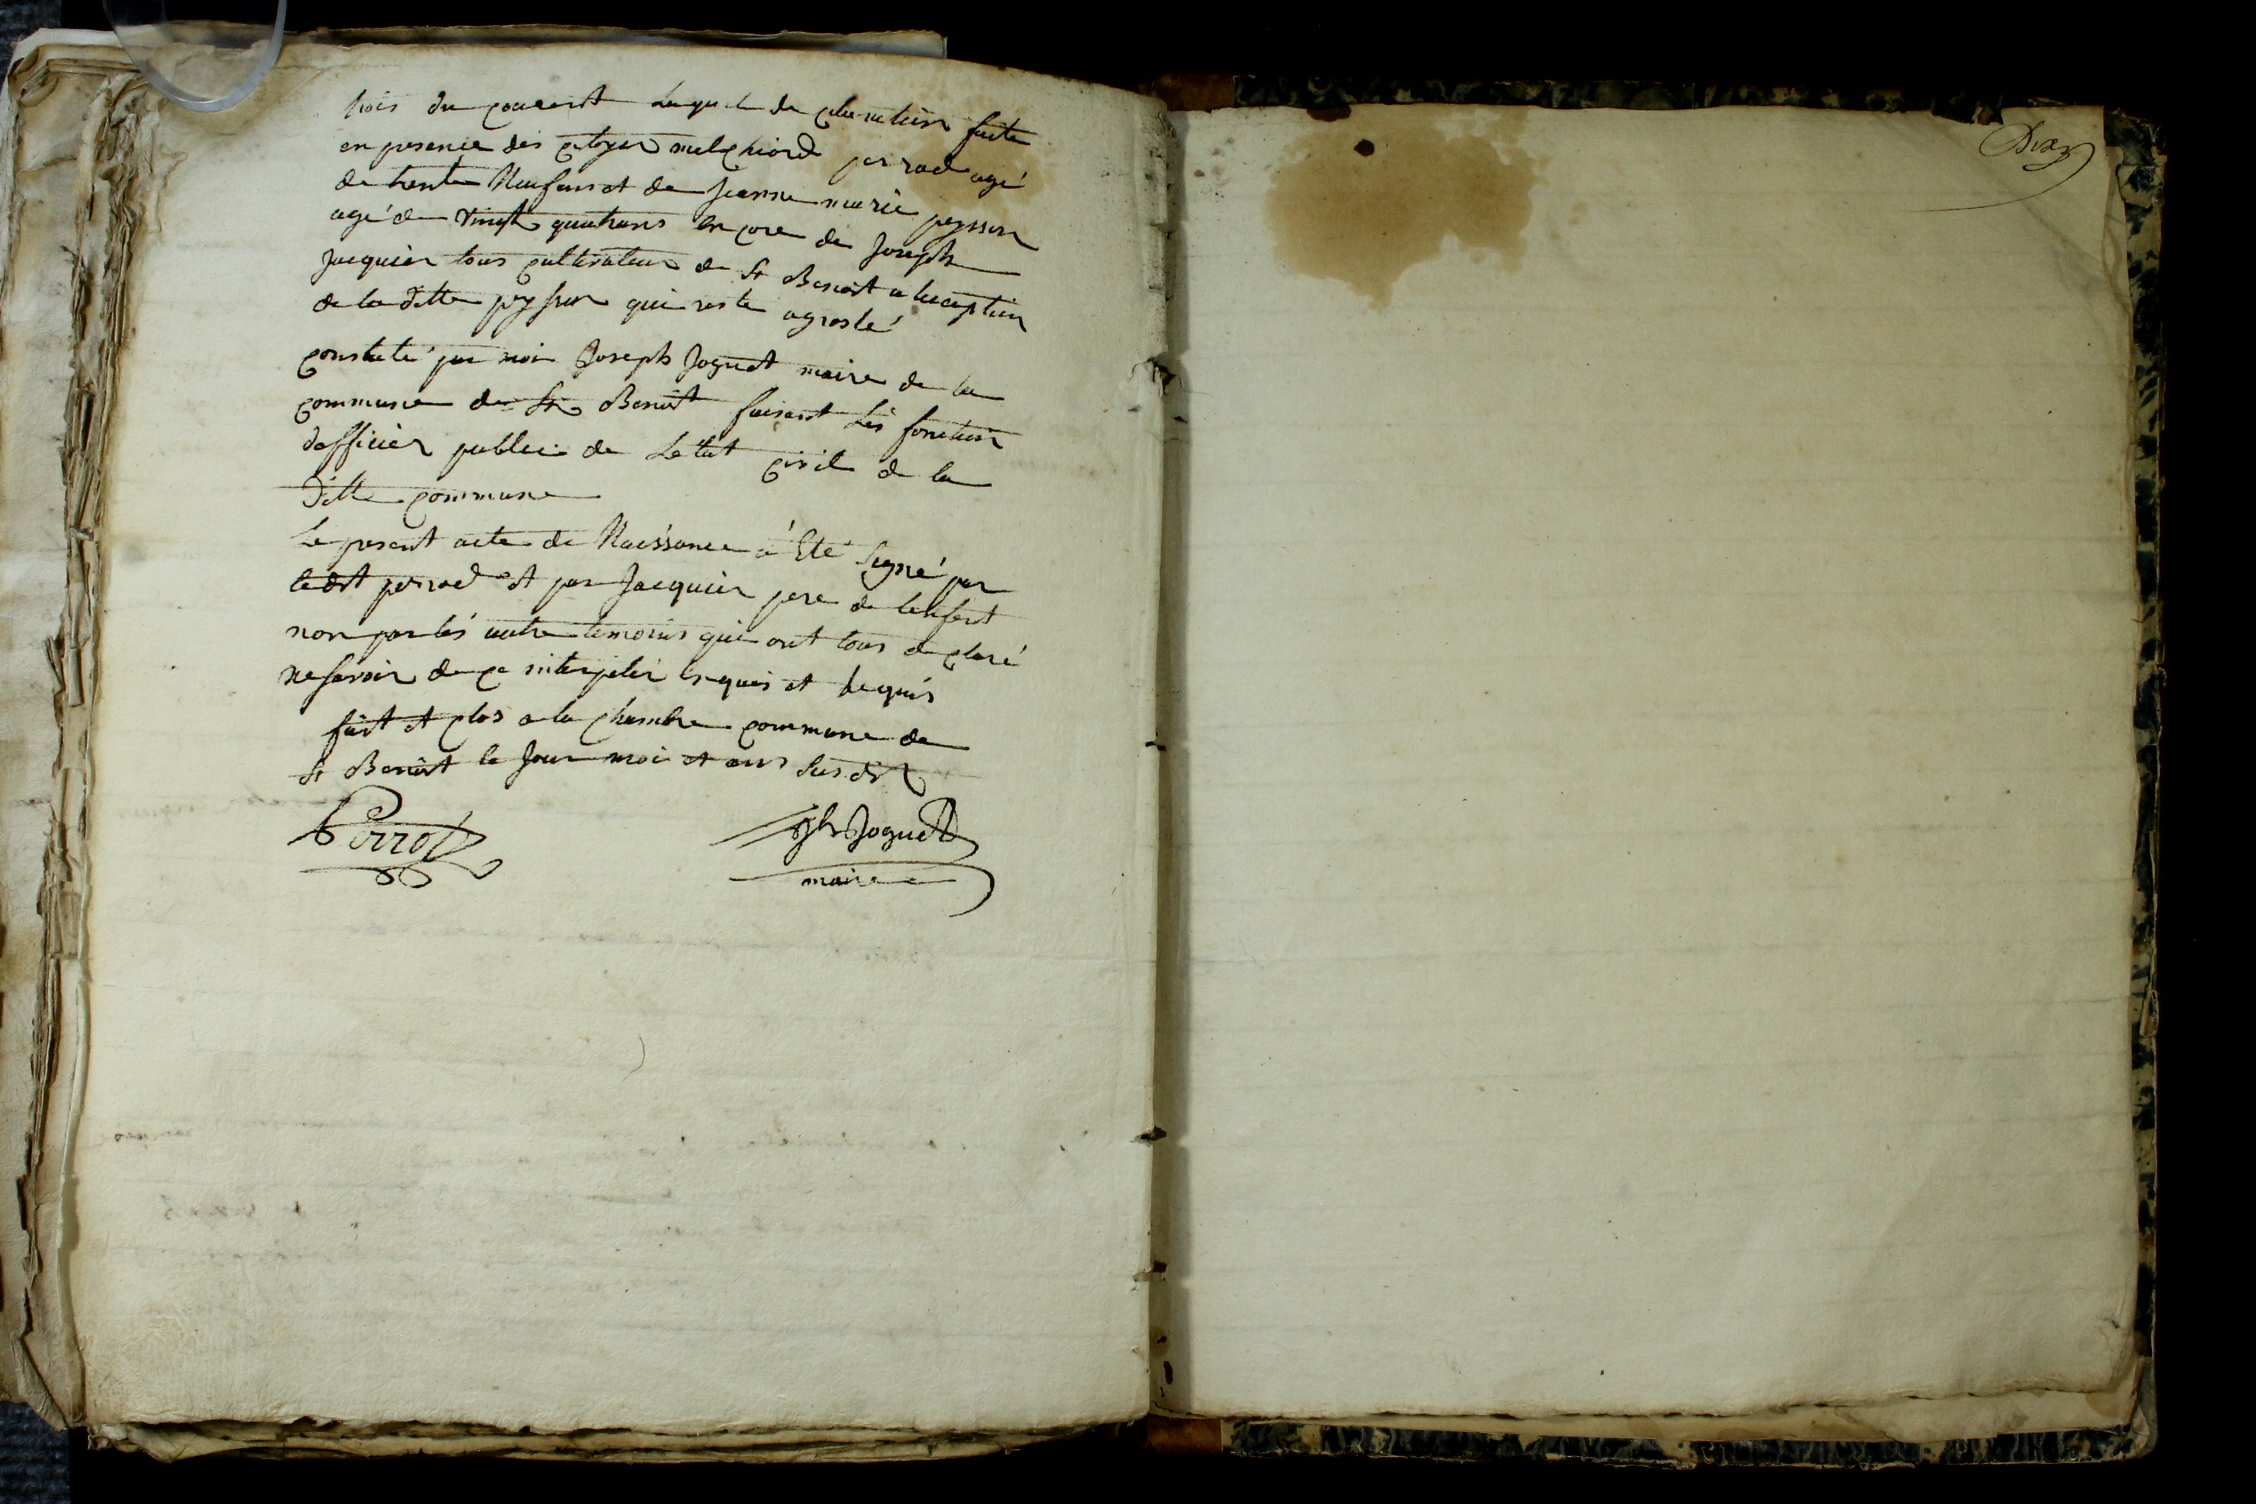 trois du courant laquele declaration faite
en presence des citoyen melchiord perrod agé
de trente Neuf ans et de jeanne marie peysson
agé de vingt quatrans encore de joseph
jacquier tous cultivateur de St Benoit a lexception
de la ditte peysson qui reste
constaté par moi Joseph Joguet maire de la
commune de St Benoit faisant les fonction
dofficier public de Letat civil de la
ditte commune
Le present acte de Naissance a Eté signé par
ledit perrod et par jacquier pere de lenfant
non par les autre temoins qui ont tous declaré
ne savoir de ce interpeler enquis et requis
fait et clos a la chambre commune de
St Benoit le jour moi et ans susdit
Perrod
Jh Joguet
maire
Dix